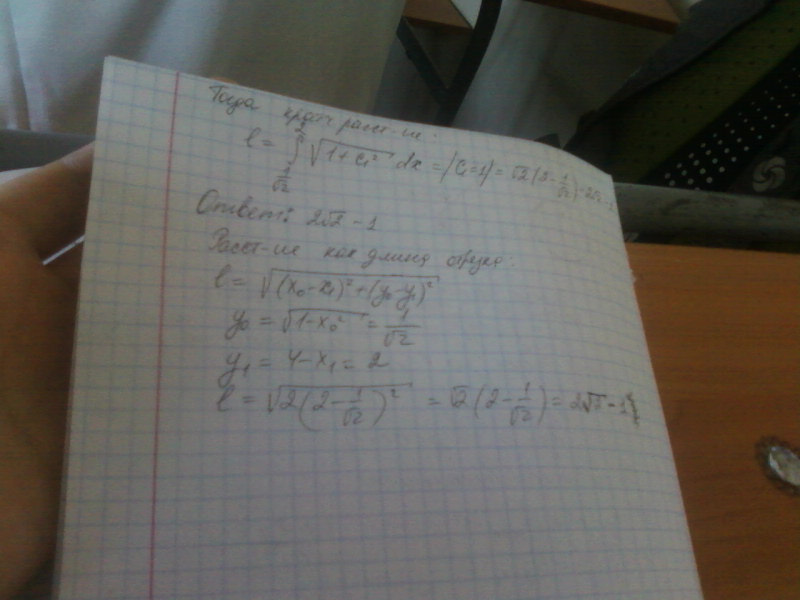 Тогда кратч расст-ие:
l = ∫_{1/√2}^{2} √(1+C₁²) dx = |C₁=1| = √2(2-1/√2) = 2√2-1
Ответ: 2√2 - 1
Расст-ие как длина отрезка:
l = √((x₀-x₁)²+(y₀-y₁)²)
y₀ = √(1-x₀²) = 1/√2
y₁ = 4-x₁ = 2
l = √(2(2-1/√2)²) = √2(2-1/√2) = 2√2-1